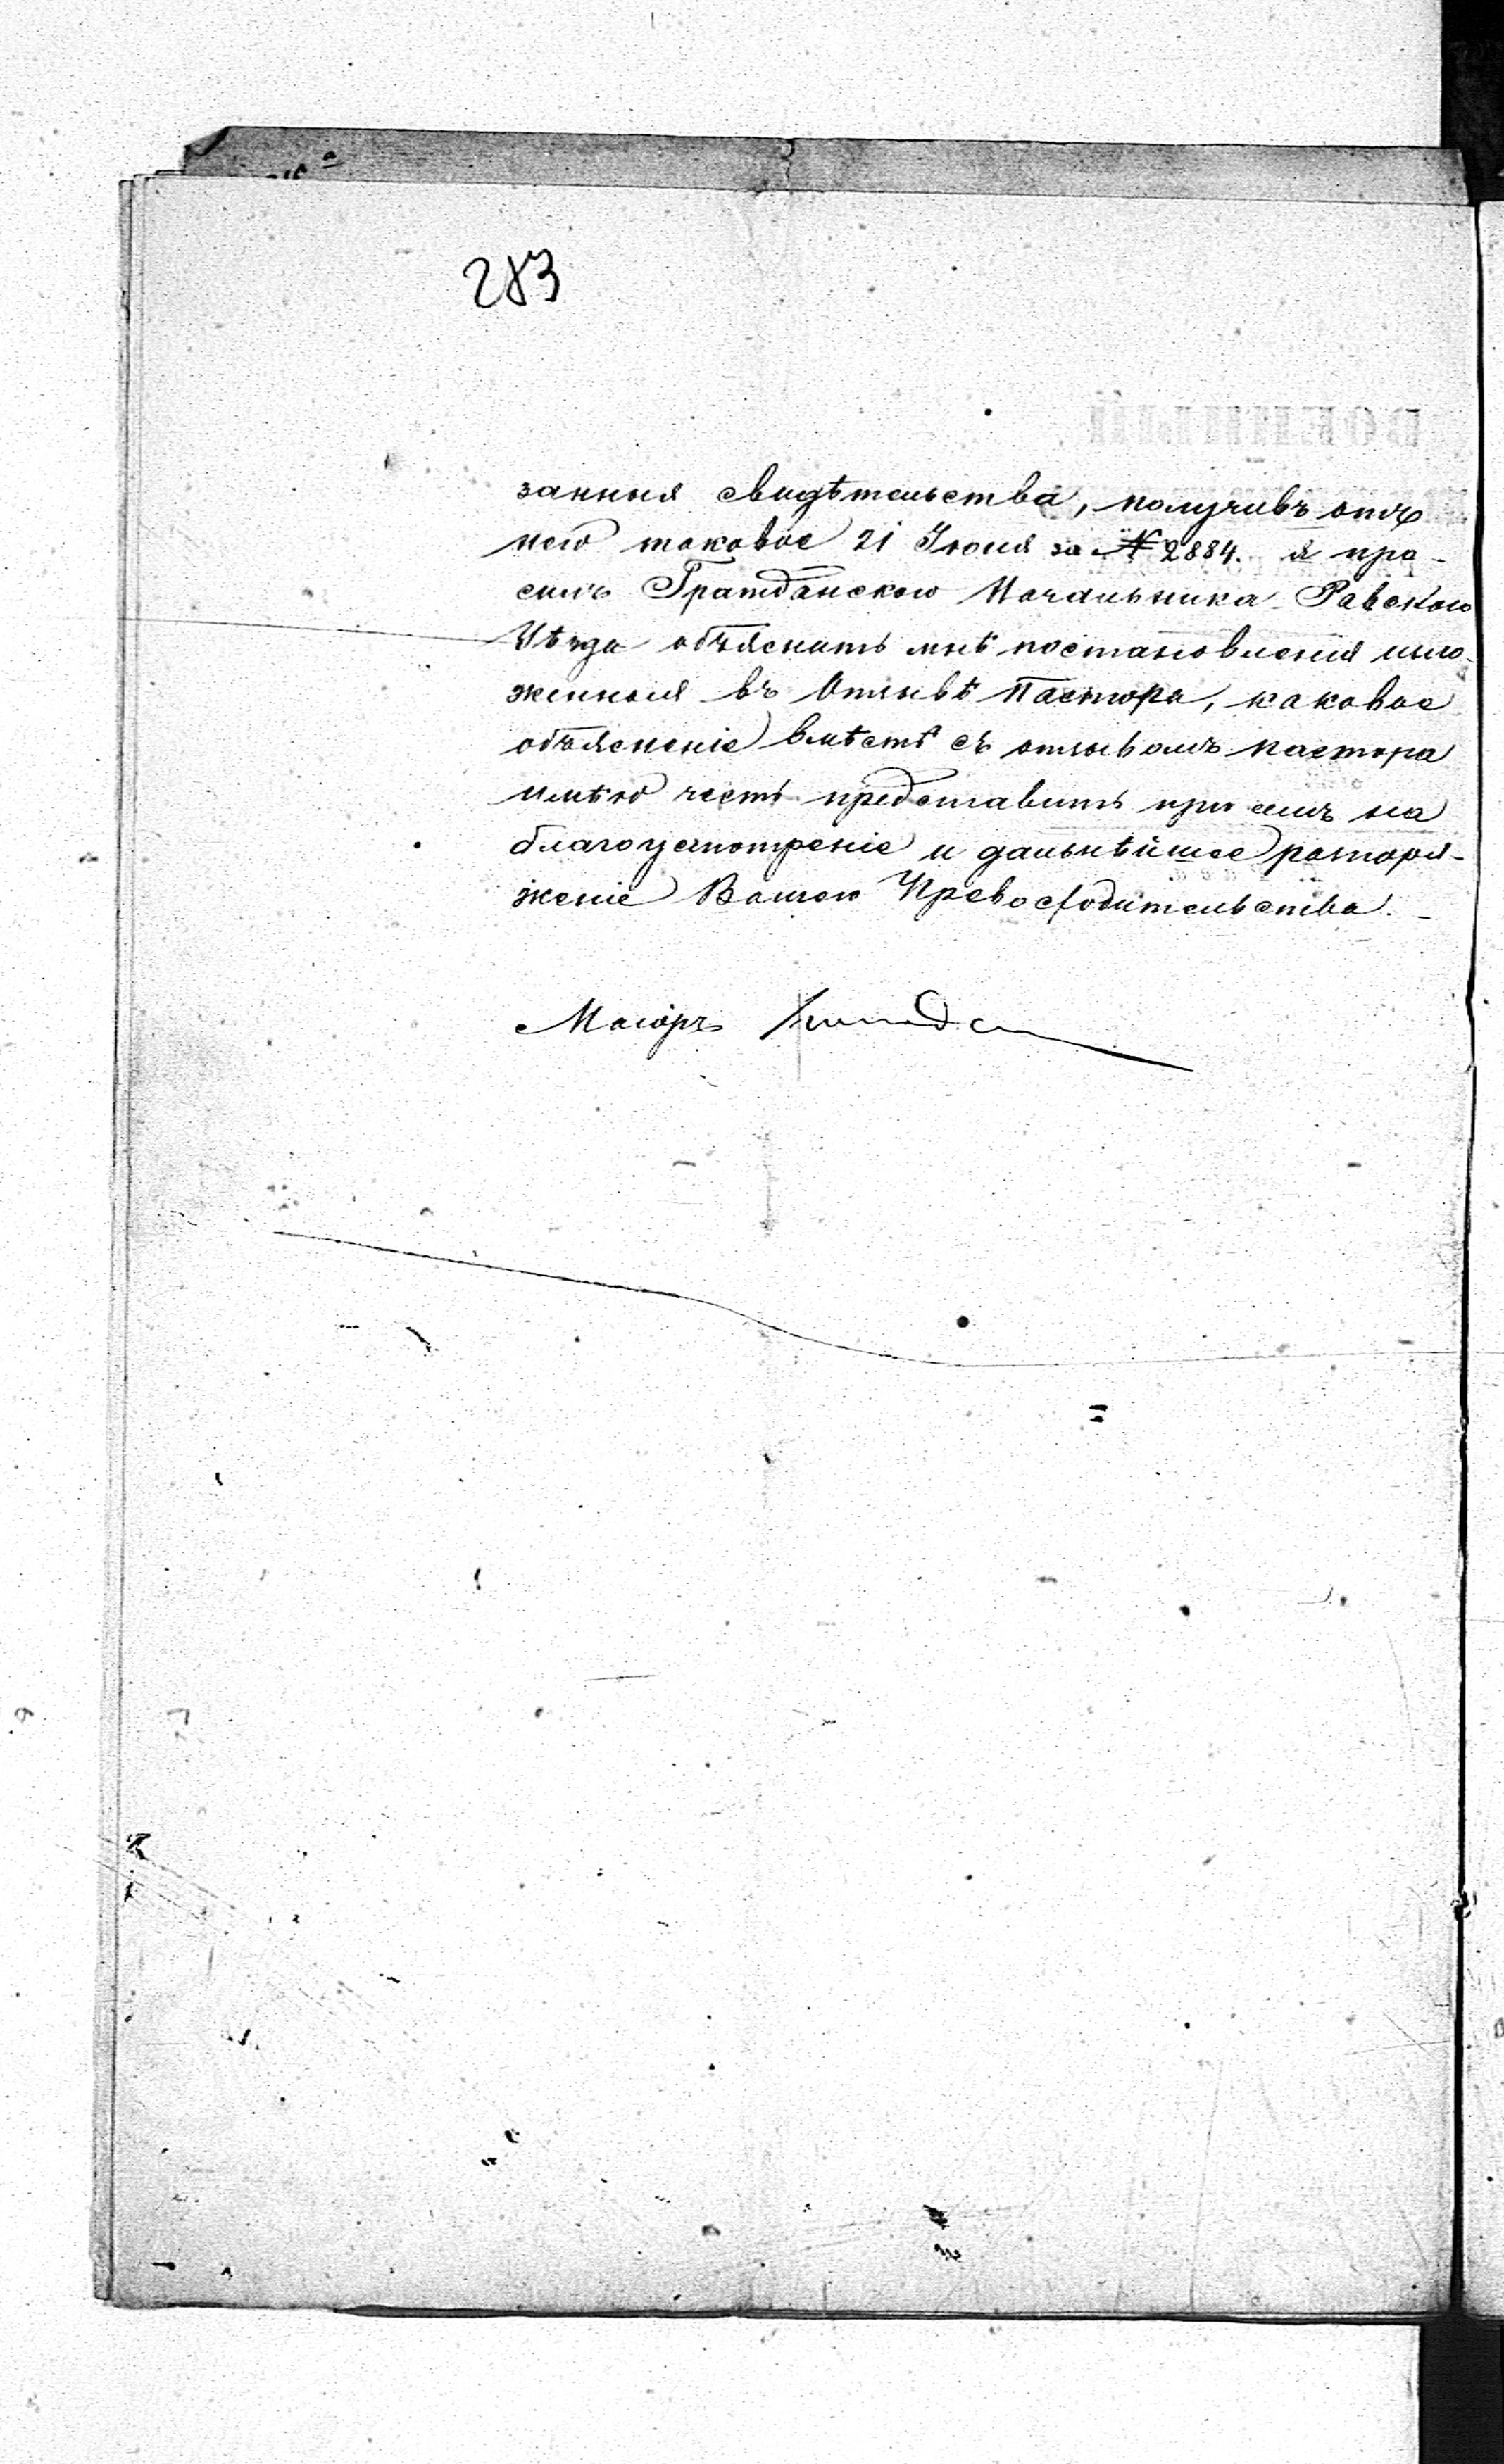 283
занныя свидѣтельства, получивъ отъ
него таковое 21 Іюня за № 2884. я про-
силъ Гражданскаго Начальника Равскаго
Уѣзда объяснить мнѣ постановленія изло-
женныя въ Отзывѣ Пастора, каковое
объясненіе вмѣстѣ съ отзывомъ пастора
имѣю честь представить при семъ на
благоусмотреніе и дальнѣйшее распоря-
женіе Вашего Превосходительства.
Маіоръ